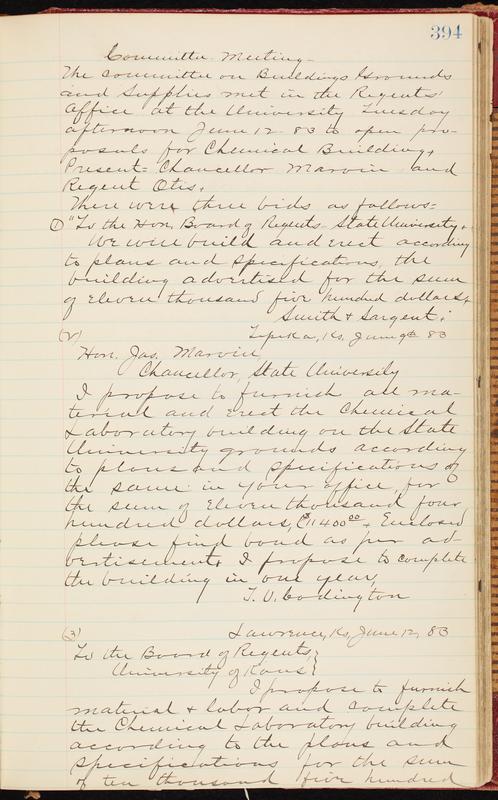 394
Committee Meeting
The committee on Buildings Grounds
and Supplies met in the Regents'
Office at the University Tuesday
afternoon June 12 83 to open pro-
posals for Chemical Building.
Present = Chancellor Marvin and
Regent Otis.
There were three bids as follows =
(1) "To the Hon. Board of Regents State University.
We will build and erect according
to plans and specifications, the
building advertised for the sum
of Eleven thousand five hundred dollars.
Smith & Sargent.
(2) Topeka, Ks, June 9th 83
Hon. Jas. Marvin
Chancellor, State University
I propose to furnish all ma-
terial and erect the Chemical
Laboratory building on the State
University grounds according
to plans and specifications of
the same in your office for
the sum of Eleven thousand four
hundred dollars, $11400.00 + Enclosed
please find bond as per ad-
vertisement. I propose to complete
the building in one year,
T. V. Codington
(3) Lawrence, Ks, June 12, 83
To the Board of Regents,
University of Kans.
I propose to furnish
material & labor and complete
the Chemical Laboratory building
according to the plans and
specifications for the sum
of ten thousand five hundred